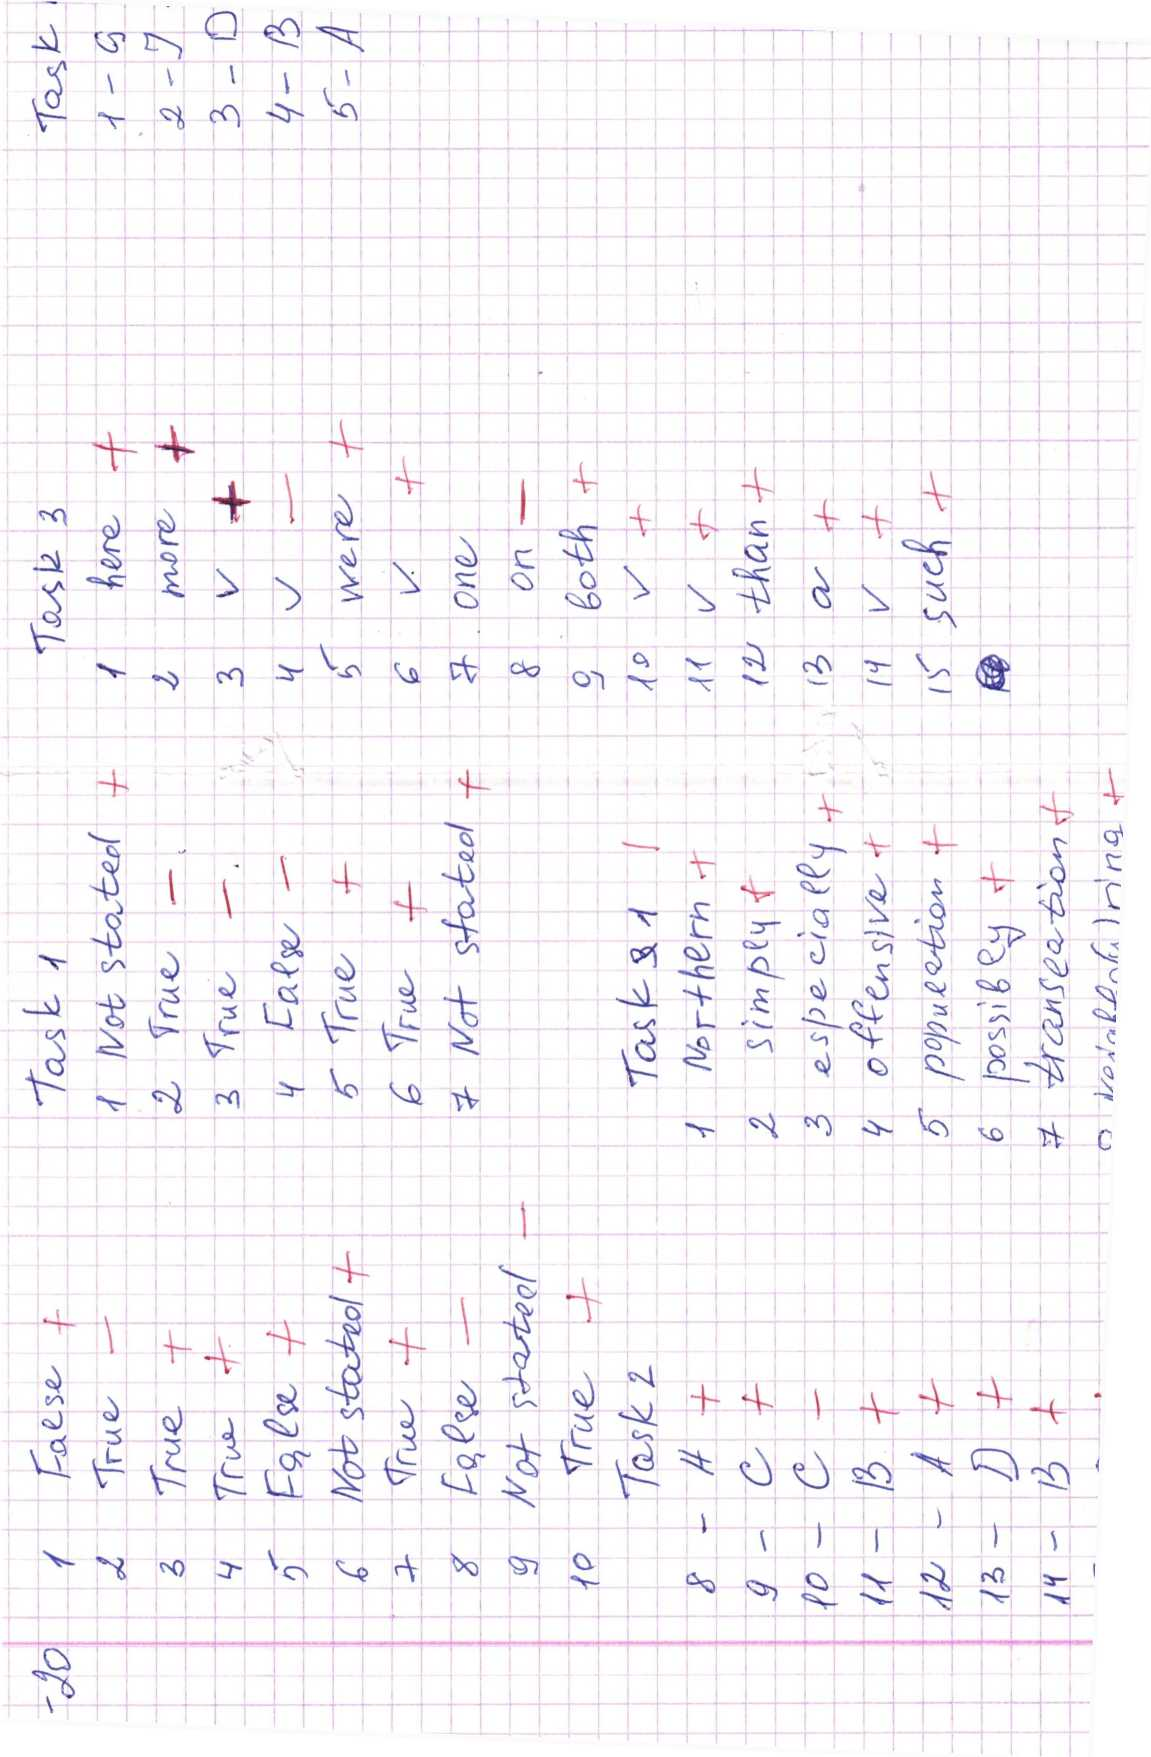 -20
1 False +
2 True −
3 True +
4 True +
5 False +
6 Not stated +
7 True +
8 False −
9 Not started −
10 True +
Task 2
8 - A +
9 - C +
10 - C −
11 - B +
12 - A +
13 - D +
14 - B +
Task 1
1 Not stated +
2 True −
3 True −
4 False −
5 True +
6 True +
7 Not stated +
Task 1
1 Northern +
2 simply +
3 especially +
4 offensive +
5 population +
6 possibly +
7 translation +
Task 3
1 here +
2 more +
3 v +
4 v −
5 were +
6 v +
7 one
8 on −
9 both +
10 v +
11 v +
12 than +
13 a +
14 v +
15 such +
Task
1 - G
2 - J
3 - D
4 - B
5 - A